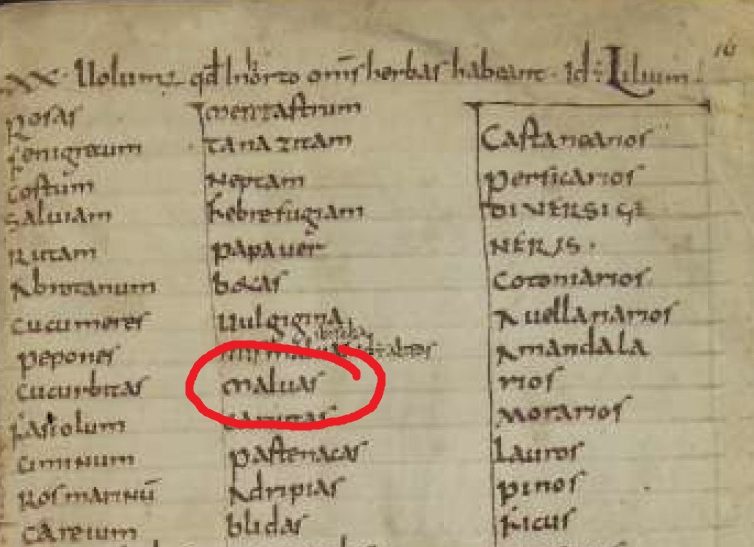 16
LXX. Uolum; qd Inorto om̅s herbas habeant. Id÷ Lilium
rosas
fenigrecum
costum
saluiam
Rutam
Abrotanum
cucumeres
pepones
cucurbitas
fasiolum
ciminum
Rosmarinū
careium
mentastrum
tanazitam
neptam
febrefugiam
papauer
betas
uulgigina
maluas
carruitas
pastenacas
Adripias
blidas
Castanearios
persicarios
DIUERSI GE
NERIS.
Cotoniarios
Auellanarios
Amandala
rios
Morarios
Lauros
pinos
ficus